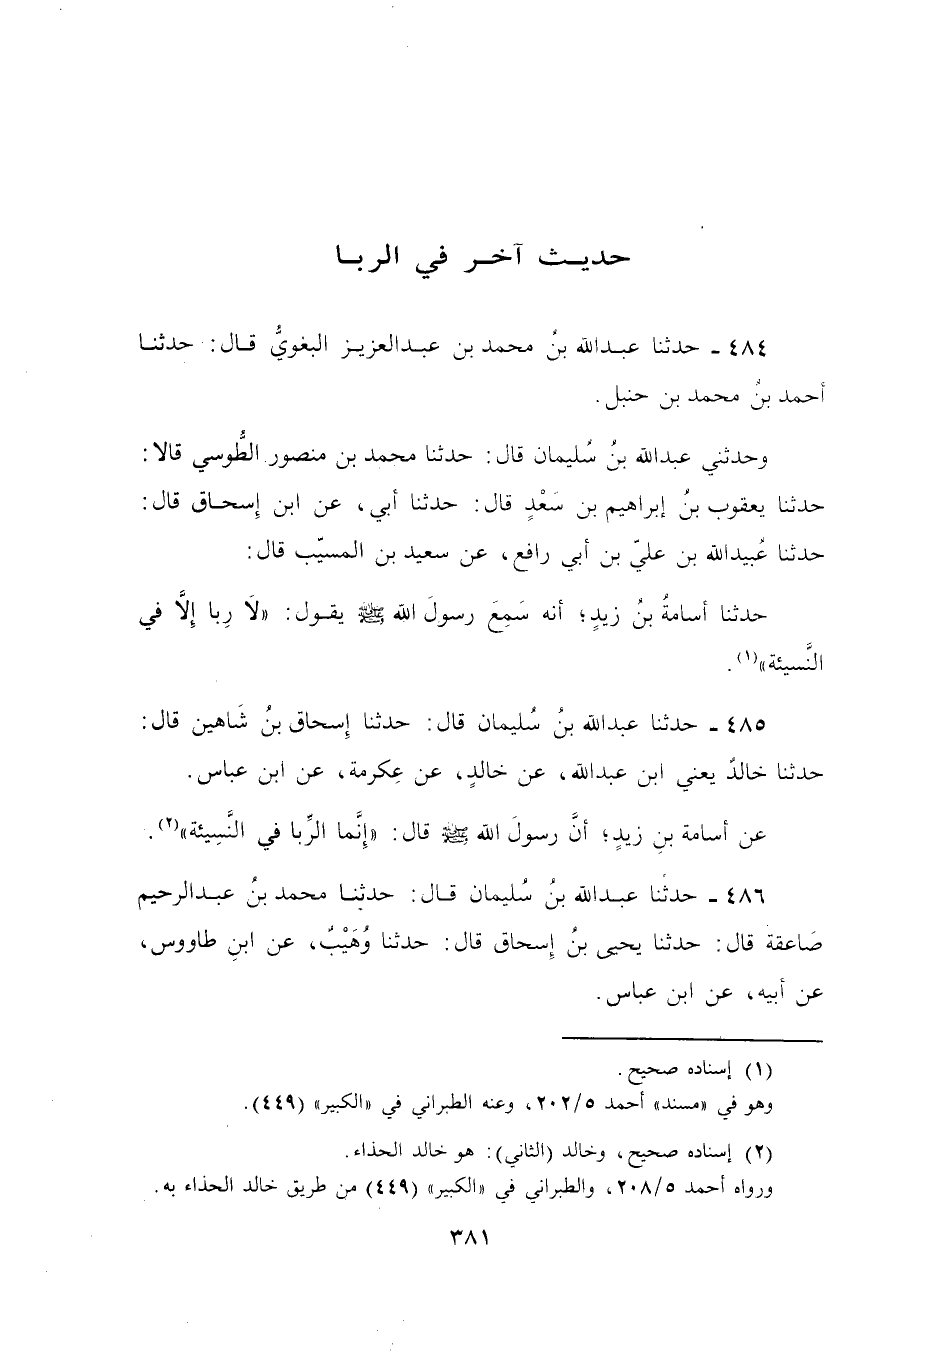 حديث آخر في الربا
٤٨٤ ـ حدثنا عبدالله بنُ محمد بن عبدالعزيز البغويُّ قال: حدثنا
أحمد بنُ محمد بن حنبل.
وحدثني عبدالله بنُ سُليمان قال: حدثنا محمد بن منصور الطُّوسي قالا:
حدثنا يعقوب بنُ إبراهيم بن سَعْدٍ قال: حدثنا أبي، عن ابن إسحاق قال:
حدثنا عُبيدالله بن عليّ بن أبي رافع، عن سعيد بن المسيّب قال:
حدثنا أسامةُ بنُ زيدٍ؛ أنه سَمِعَ رسولَ الله ﷺ يقول: «لَا رِبا إلَّا في
النَّسيئة»(١).
٤٨٥ ـ حدثنا عبدالله بنُ سُليمان قال: حدثنا إسحاق بنُ شَاهين قال:
حدثنا خالدٌ يعني ابن عبدالله، عن خالدٍ، عن عِكرمة، عن ابن عباس.
عن أسامة بنِ زيدٍ؛ أنَّ رسولَ الله ﷺ قال: «إنَّما الرِّبا في النَّسِيئة»(٢).
٤٨٦ ـ حدثنا عبدالله بنُ سُليمان قال: حدثنا محمد بنُ عبدالرحيم
صَاعقة قال: حدثنا يحيى بنُ إسحاق قال: حدثنا وُهَيْبٌ، عن ابنِ طاووس،
عن أبيه، عن ابن عباس.
(١) إسناده صحيح.
وهو في «مسند» أحمد ٢٠٢/٥، وعنه الطبراني في «الكبير» (٤٤٩).
(٢) إسناده صحيح، وخالد (الثاني): هو خالد الحذاء.
ورواه أحمد ٢٠٨/٥، والطبراني في «الكبير» (٤٤٩) من طريق خالد الحذاء به.
٣٨١